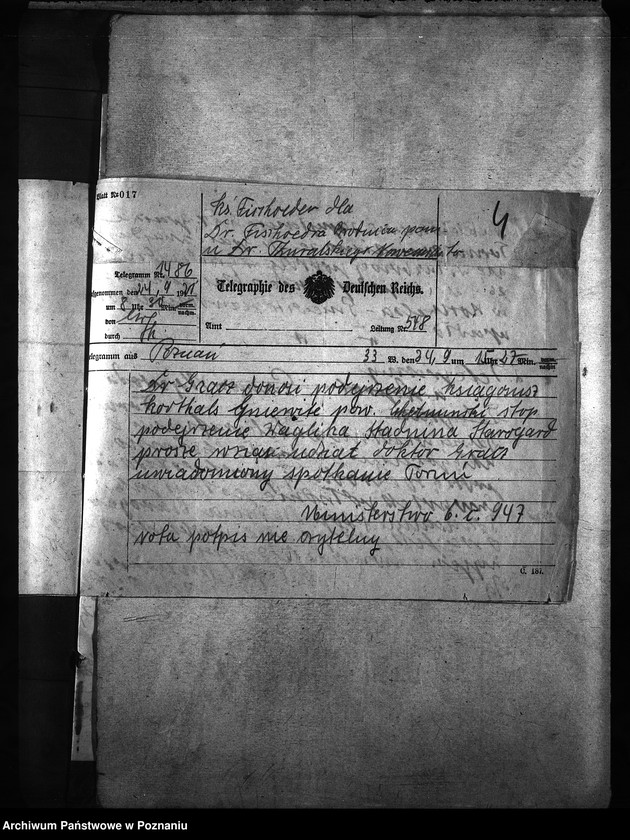 Blatt № 017
4
ks. Fischoeder dla
Dr. Fischoedra
u Dr.
Telegramm Nr. 1486
genommen den 24, 9 1921
um 8 Uhr Min. vorm. nachm.
von
durch
Telegraphie des Deutschen Reichs.
Amt
Leitung Nr. 548
Telegramm aus Poznan 33 W. den 24, 9 um 15 Uhr 27 Min. vorm. nachm.
Dr Gracz donosi podejrzenie księgosusz
Korthals Gniewite pow. stop
podejrzenie Waglika Stadnina Starogard
proszę wziąć udział doktor Gracz
uwiadomiony spotkanie Torun
Ministerstwo 6. z. 947
nota potpis nie czytelny
C. 187.
Archiwum Państwowe w Poznaniu